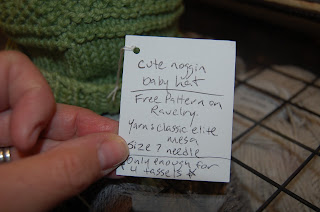 cute noggin
baby hat
Free Pattern on
Ravelry.
Yarn: classic elite
mesa
Size 7 needle
only enough for
4 tassels